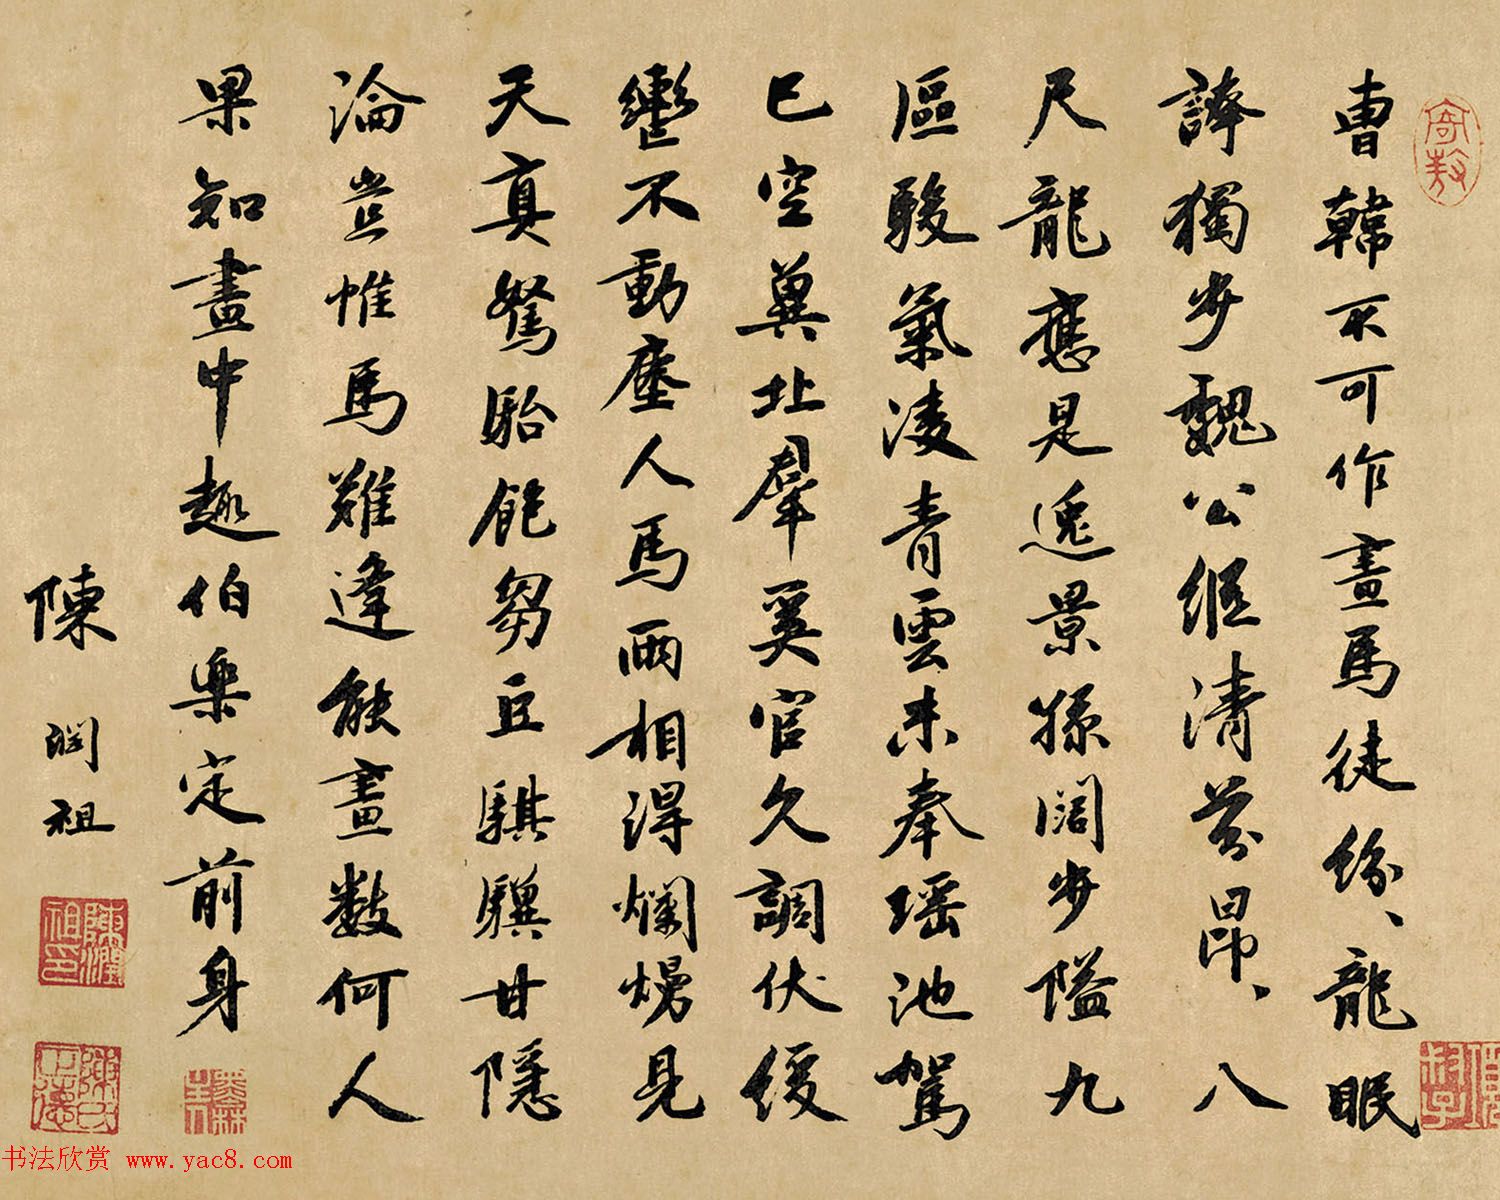 曹韓不可作畫馬徒紛、龍眠
誇獨步魏公繼清芬昂、八
尺龍應是逸景孫闊步隘九
區駿氣凌青雲未奉瑶池駕
已空冀北羣奚官久調伏緩
轡不動塵人馬兩相得爛熳見
天真駑駘飽芻豆騏驥甘隱
淪豈惟馬難逢能畫數何人
果知畫中趣伯樂定前身
陳潤祖
陳潤祖印
书法欣赏 www.yac8.com